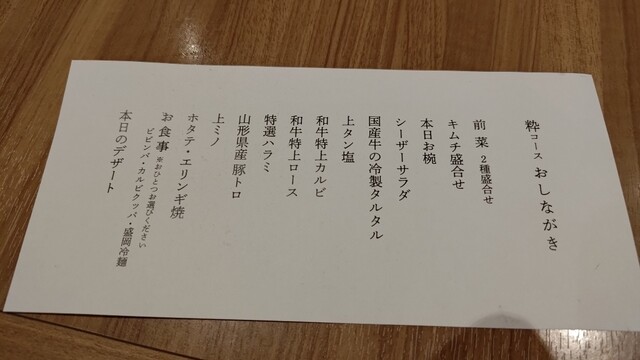 粋コース おしながき
前菜 2種盛合せ
キムチ盛合せ
本日お椀
シーザーサラダ
国産牛の冷製タルタル
上タン塩
和牛特上カルビ
和牛特上ロース
特選ハラミ
山形県産 豚トロ
上ミノ
ホタテ・エリンギ焼
お食事 ※おひとつお選びください
ビビンバ・カルビクッパ・盛岡冷麺
本日のデザート